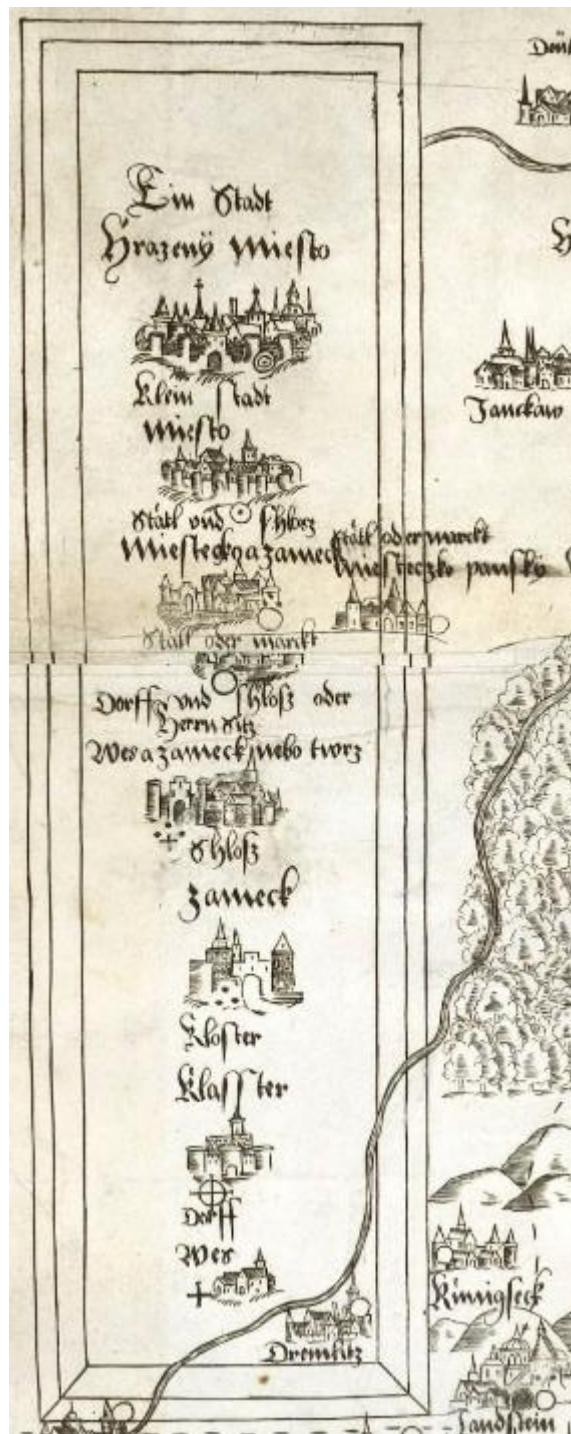 Ein Stadt
Hrazený Miesto
Klein stadt
Miesto
Janckaw
Stätl vnd schlosz
Miestecko a zameck
Stätl oder marckt
Miesteczko panský
Stätl oder marckt
Dorff vnd schloß oder
Herrn sitz
Wes a zameck nebo twrz
Schloß
zameck
Kloster
Klasster
Dorff
Wes
Königseck
Dremlitz
Landstein